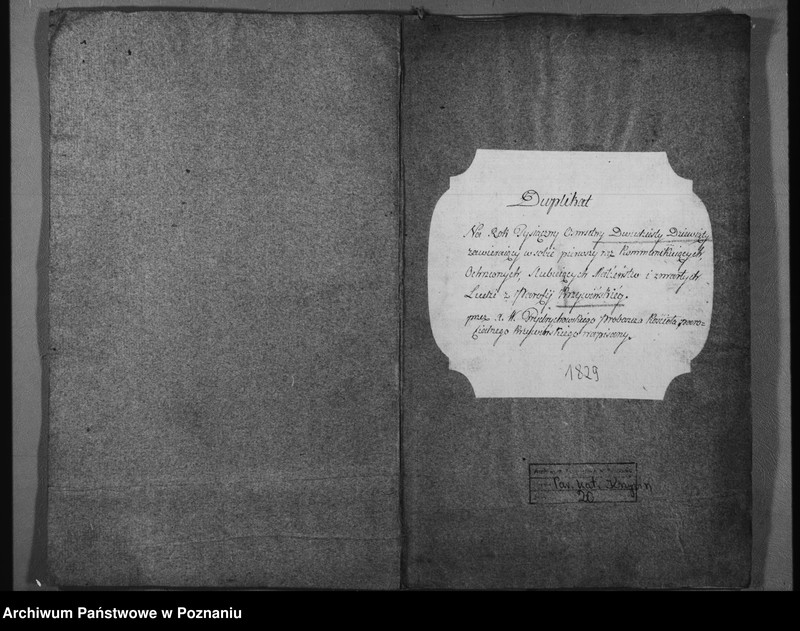 Duplikat
Na Rok Tysiączny Osmsetny Dwudziesty Dziewiąty
zawieraiący w sobie pierwszy raz Kommunikuiących
Ochrzconych Slubuiących Małzeństwo i zmarłych
Ludzi z Parafij Krzywińskiég.
przez X. Proboszcza Kościoła paro-
Krzywinskiego
1829
Par. kat. Krzywiń
20
Archiwum Państwowe w Poznaniu